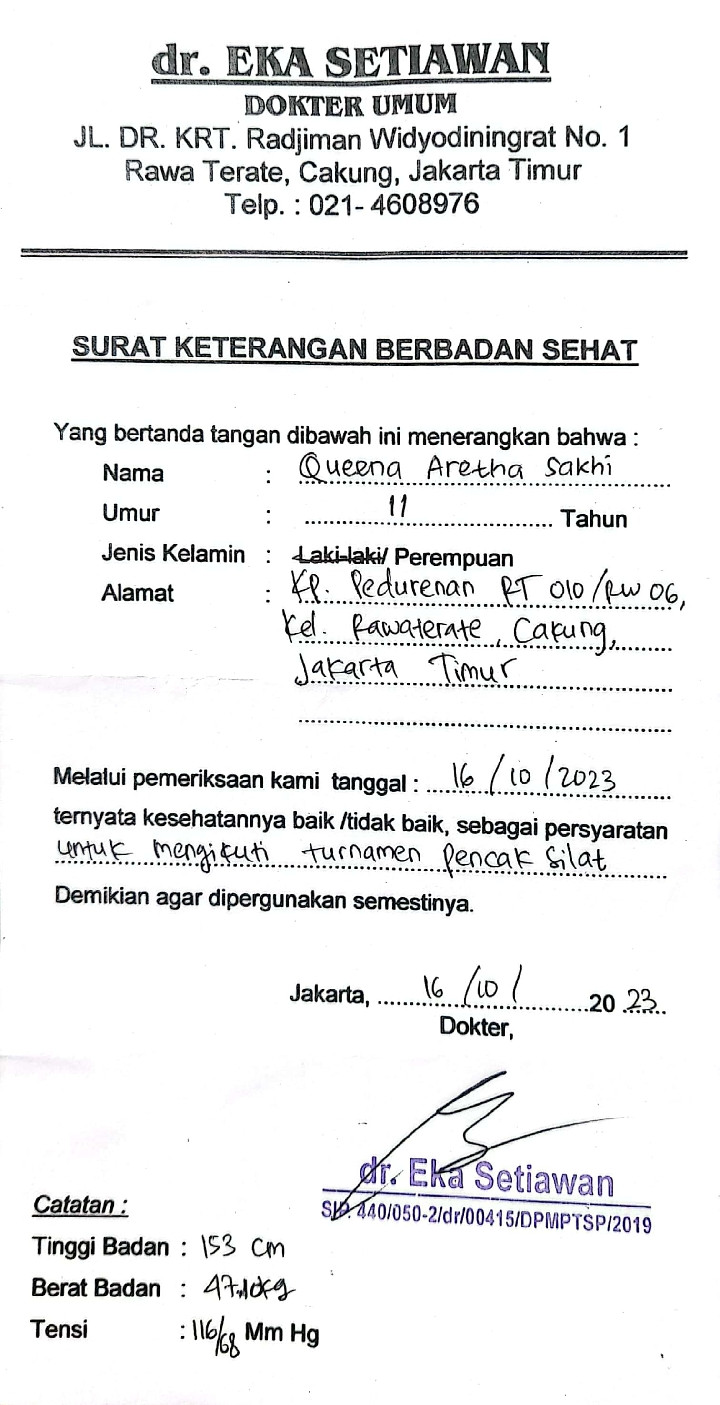 dr. EKA SETIAWAN
DOKTER UMUM
JL. DR. KRT. Radjiman Widyodiningrat No. 1
Rawa Terate, Cakung, Jakarta Timur
Telp. : 021- 4608976
SURAT KETERANGAN BERBADAN SEHAT
Yang bertanda tangan dibawah ini menerangkan bahwa :
Nama : Queena Aretha Sakhi
Umur : 11 Tahun
Jenis Kelamin : Laki-laki/ Perempuan
Alamat : KP. Pedurenan RT 010/RW 06,
Kel. Rawaterate, Cakung,
Jakarta Timur
Melalui pemeriksaan kami tanggal : 16/10/2023
ternyata kesehatannya baik /tidak baik, sebagai persyaratan
untuk mengikuti turnamen Pencak Silat
Demikian agar dipergunakan semestinya.
Jakarta, 16/10/ 20 23
Dokter,
dr. Eka Setiawan
SIP. 440/050-2/dr/00415/DPMPTSP/2019
Catatan :
Tinggi Badan : 153 cm
Berat Badan : 47.10kg
Tensi : 116/68 Mm Hg